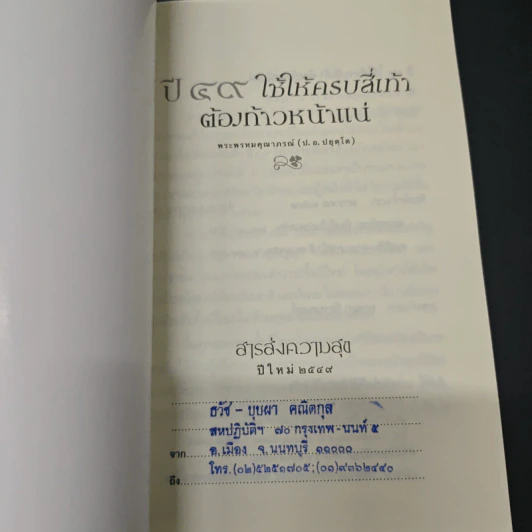 ปี ๔๙ ใช้ให้ครบสี่เท้า
ต้องก้าวหน้าแน่
พระพรหมคุณาภรณ์ (ป. อ. ปยุตฺโต)
สารส่งความสุข
ปีใหม่ ๒๕๔๙
ธวัช - บุบผา คณิตกุล
สหปฏิบัติฯ ๗๐ กรุงเทพ-นนท์ ๕
จาก อ.เมือง จ.นนทบุรี ๑๑๐๐๐
โทร.(๐๒)๕๒๕๑๗๐๕;(๐๑)๙๓๖๒๔๙๐
ถึง